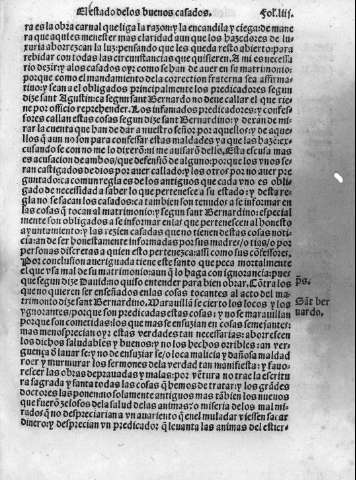 El estado de los buenos casados. Fol. liij.
ra es la obra carnal que liga la razon: y la encandila y ciega de mane
ra que aqui es menester mas claridad aun que los hazedores de lu-
xuria aborrezcan la luz: pensando que les queda resto abierto: para
rebidar con todas las circunstancias que quisieren. A mi es necessa-
rio dezir: y a los casados oyr: como se han de auer en su matrimonio:
porque como el mandamiento de la correction fraterna sea affirma-
tino: y sean a el obligados principalmente los predicadores segun
dize sant Agustin: ca segun sant Bernardo no deue callar el que tie
ne por officio reprehender. Los infamados predicadores: y confes-
sores callan estas cosas segun dize sant Bernardino: y deran de mi-
rar la cuenta que han de dar a nuestro señor por aquellos: y de aque-
llos q̃ aun no son para confessar estas maldades y a que las hazē: ex
cusando se con no me lo dixerō ni me acusarō dello. Esta escusa mas
es acusacion de ambos: que defensiō de alguno: porque los vnos se-
ran castigados de dios por auer callado: y los otros por no auer pre
guntado: ca comun regla es de los antiguos que cada vno es obli-
gado de necessidad a saber lo que pertenesce a su estado: y desta re-
gla no se sacan los casados: ca tambien son tenudos a se informar en
las cosas q̃ tocan al matrimonio: y segun sant Bernardino: especial
mente son obligados a se informar en las que pertenescen al honesto
ayuntamiento: y las rezien casadas que no tienen destas cosas noti-
cia: an de ser honestamente informadas por sus madres / o tias / o por
personas discretas a quien esto pertenezca: assi como sus cōfessores.
Por conclusion aueriguada tiene este santo que peca mortalmente
el que vsa mal de su matrimonio: aun q̃ lo haga con ignorancia: pues
que segun dize Dauid no quiso entender para bien obrar. Cōtra los
que no quieren ser enseñados en las cosas tocantes al acto del ma-
trimonio dize sant Bernardino. Marauilla se cierto los locos y los
ygnorantes: porque son predicadas estas cosas: y no se marauillan
porque son cometidas: los que mas se ensuzian en cosas semejantes:
mas menosprecian oyr estas verdades tan necessarias: aborrescen
los dichos saludables y buenos: y no los hechos orribles: an ver-
guença d̃ lauar se: y no de ensuziar se: o loca malicia y dañosa maldad
roer y murmurar los sermones de la verdad tan manifiesta: y fauo-
rescer las obras deprauadas y malas: por vētura no trae la escritu
ra sagrada y santa todas las cosas q̃ hemos de tratar: y los grādes
doctores las ponen no solamente antiguos mas tābien los nueuos
que fuerō zelosos de la salud de las animas: o miseria de los mal mi-
rados q̃ no despreciarian a vn auariento q̃ en el muladar viessen sacar
dinero: y desprecian vn predicador q̃ leuanta las animas del ester-
ps.
Sāt ber
nardo.